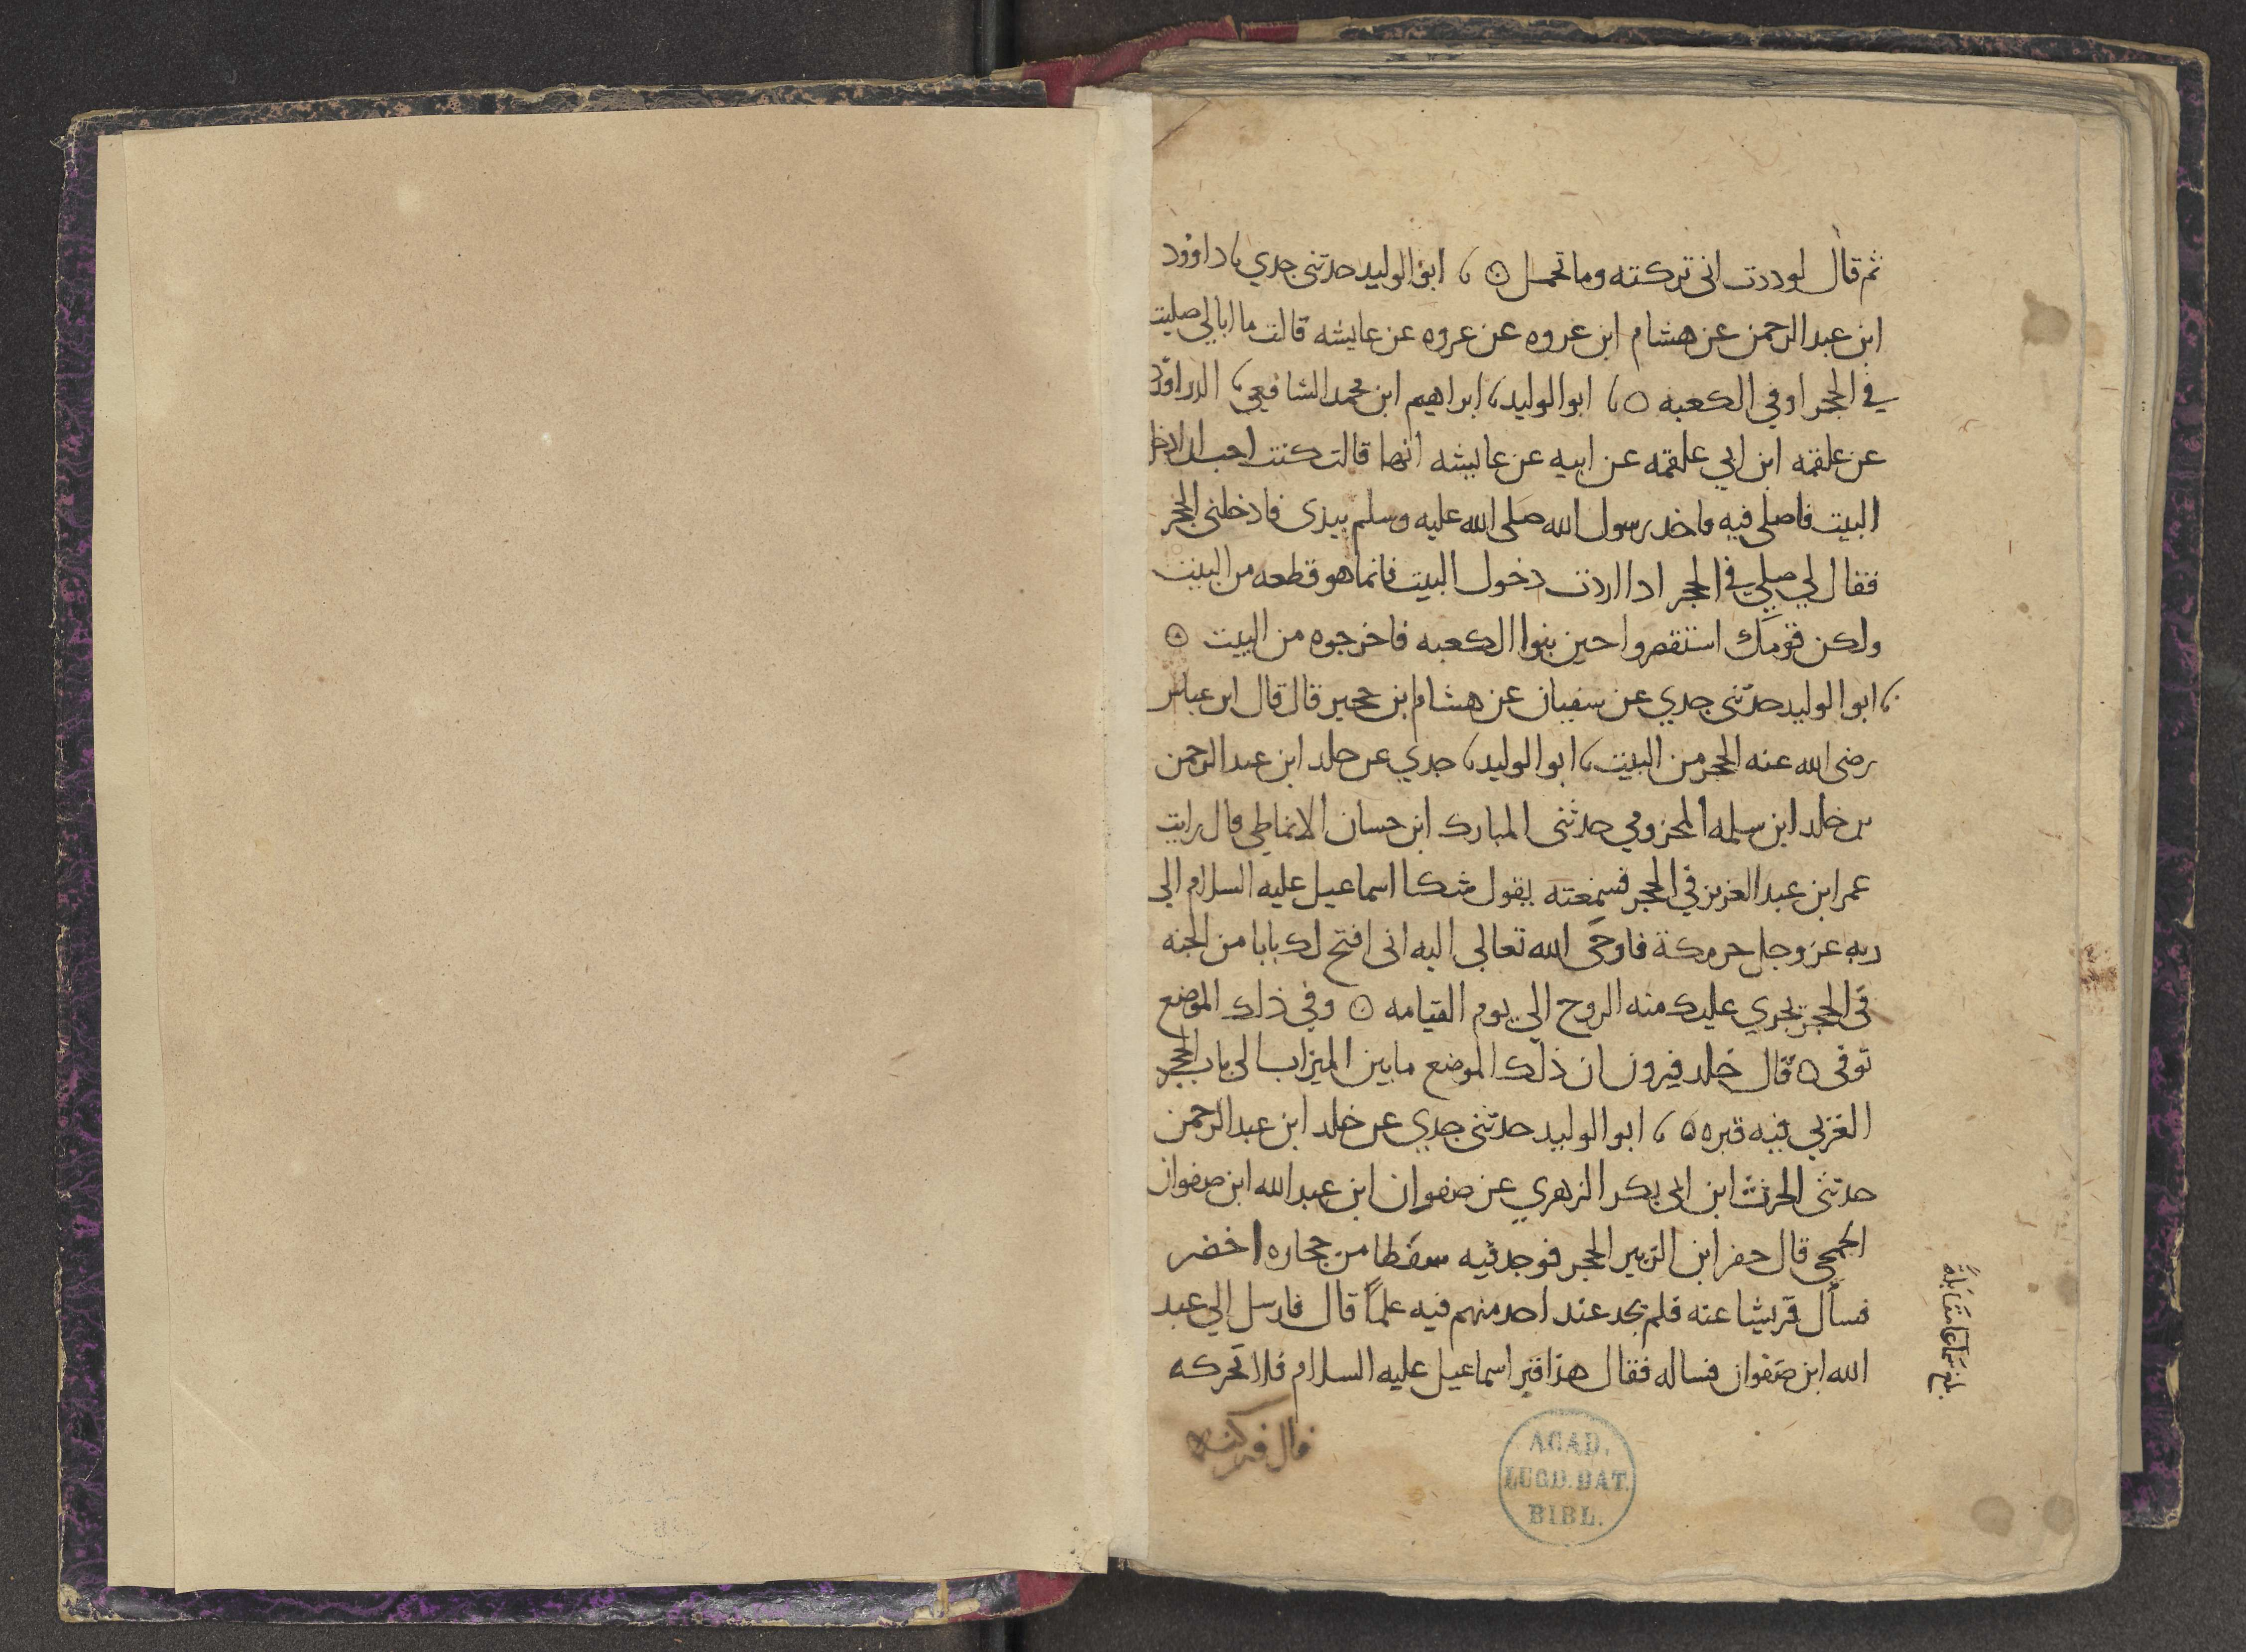 ثم قال لوددت انى تركته وما تحمل ۞ ، ابو الوليد حدثنى جدي ، داوود
ابن عبد الرحمن عن هشام ابن عروه عن عروه عن عايشه قالت ما ابالي صليت
في الحجر او في الكعبه ۞ ، ابو الوليد ، ابراهيم ابن محمد الشافعي ،
عن علقمه ابن ابي علقمه عن ابيه عن عايشه انها قالت كنت احب ان ادخل
البيت فاصلى فيه فاخد رسول الله صلى الله عليه وسلم بيدى فادخلنى الحجر
فقال لي صلي في الحجر ادا اردت دخول البيت فانما هو قطعه من البيت
ولكن قومك استقصروا حين بنوا الكعبه فاخرجوه من البيت ۞
، ابو الوليد حدثنى جدي عن سفيان عن هشام ابن حجير قال قال ابن عباس
رضى الله عنه الحجر من البيت ، ابو الوليد ، جدي عن خلد ابن عبد الرحمن
بن خلد ابن سلمه المخزومي حدثنى المبارك ابن حسان الانماطي قال رايت
عمر ابن عبد العزيز في الحجر فسمعته يقول شكا اسماعيل عليه السلام الي
ربه عز وجل حر مكة فاوحى الله تعالى اليه انى افتح لك بابا من الجنه
فى الحجر يجري عليك منه الروح الي يوم القيامه ۞ وفي ذلك الموضع
توفى ۞ قال خلد فيرون ان ذلك الموضع ما بين الميزاب الى باب الحجر
الغربي فيه قبره ۞ ، ابو الوليد حدثنى جدي عن خلد ابن عبد الرحمن
حدثنى الحرث ابن ابى بكر الزهري عن صفوان ابن عبد الله ابن صفوان
الجمحي قال حفر ابن الزبير الحجر فوجد فيه سفطا من حجاره اخضر
فسأل قريشا عنه فلم يجد عند احد منهم فيه علمًا قال فارسل الي عبد
الله ابن صفوان فساله فقال هذا قبر اسماعيل عليه السلام فلا تحركه
قال فتركه
بلغ سماعا مقابلة
ACAD.
LUGD. BAT.
BIBL.